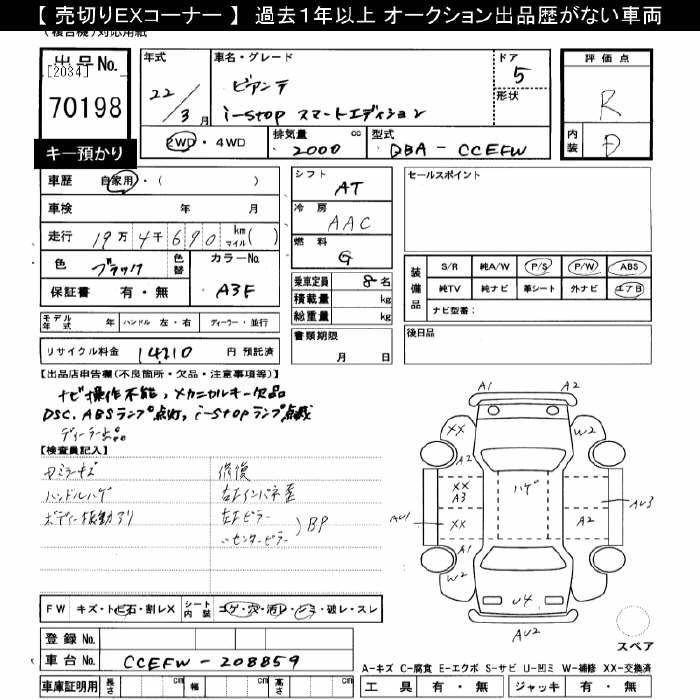 【 売切りEXコーナー 】 過去１年以上 オークション出品歴がない車両
(複合機)対応用紙
出品No.
[2034]
70198
キー預かり
年式
22/3月
車名・グレード
ビアンテ
i-stop スマートエディション
ドア
5
形状
2WD・4WD
排気量 cc
2000
型式
DBA - CCEFW
評価点
R
内装
D
車歴 自家用・( )
車検 年 月
走行 19万4千690 km マイル( )
色 ブラック 色替
カラーNo. A3F
保証書 有・無
シフト
AT
冷房
AAC
燃料
G
乗車定員 8名
積載量 kg
総重量 kg
書類期限
月 日
セールスポイント
装備品
S/R 純A/W P/S P/W ABS
純TV 純ナビ 革シート 外ナビ エアB
ナビ型番：
後日品
モデル年式 年 ハンドル 左・右 ディーラー・並行
リサイクル料金 14210 円 預託済
【出品店申告欄(不良箇所・欠品・注意事項等)】
ナビ操作不能，メカニカルキー欠品
DSC、ABSランプ点灯，i-stopランプ点滅
【検査員記入】
ハンドルハゲ
ボディー振動アリ
修復
右Fインパネ歪
右Fピラー
〃センターピラー
BP
A1 A2
XX W2
A2
XX
A3
ハゲ
AU3
XX A2
AU1
A1
W2 W2
U4
AU2
スペア
FW キズ・ト・ビ石・割レX
シート内装 コゲ・穴・汚レ・シミ・破レ・スレ
登録No.
車台No. CCEFW - 208859
車庫証明用 長さ cm 幅 cm 高さ cm
A-キズ C-腐食 E-エクボ S-サビ U-凹ミ W-補修 XX-交換済
工具 有・無 ジャッキ 有・無